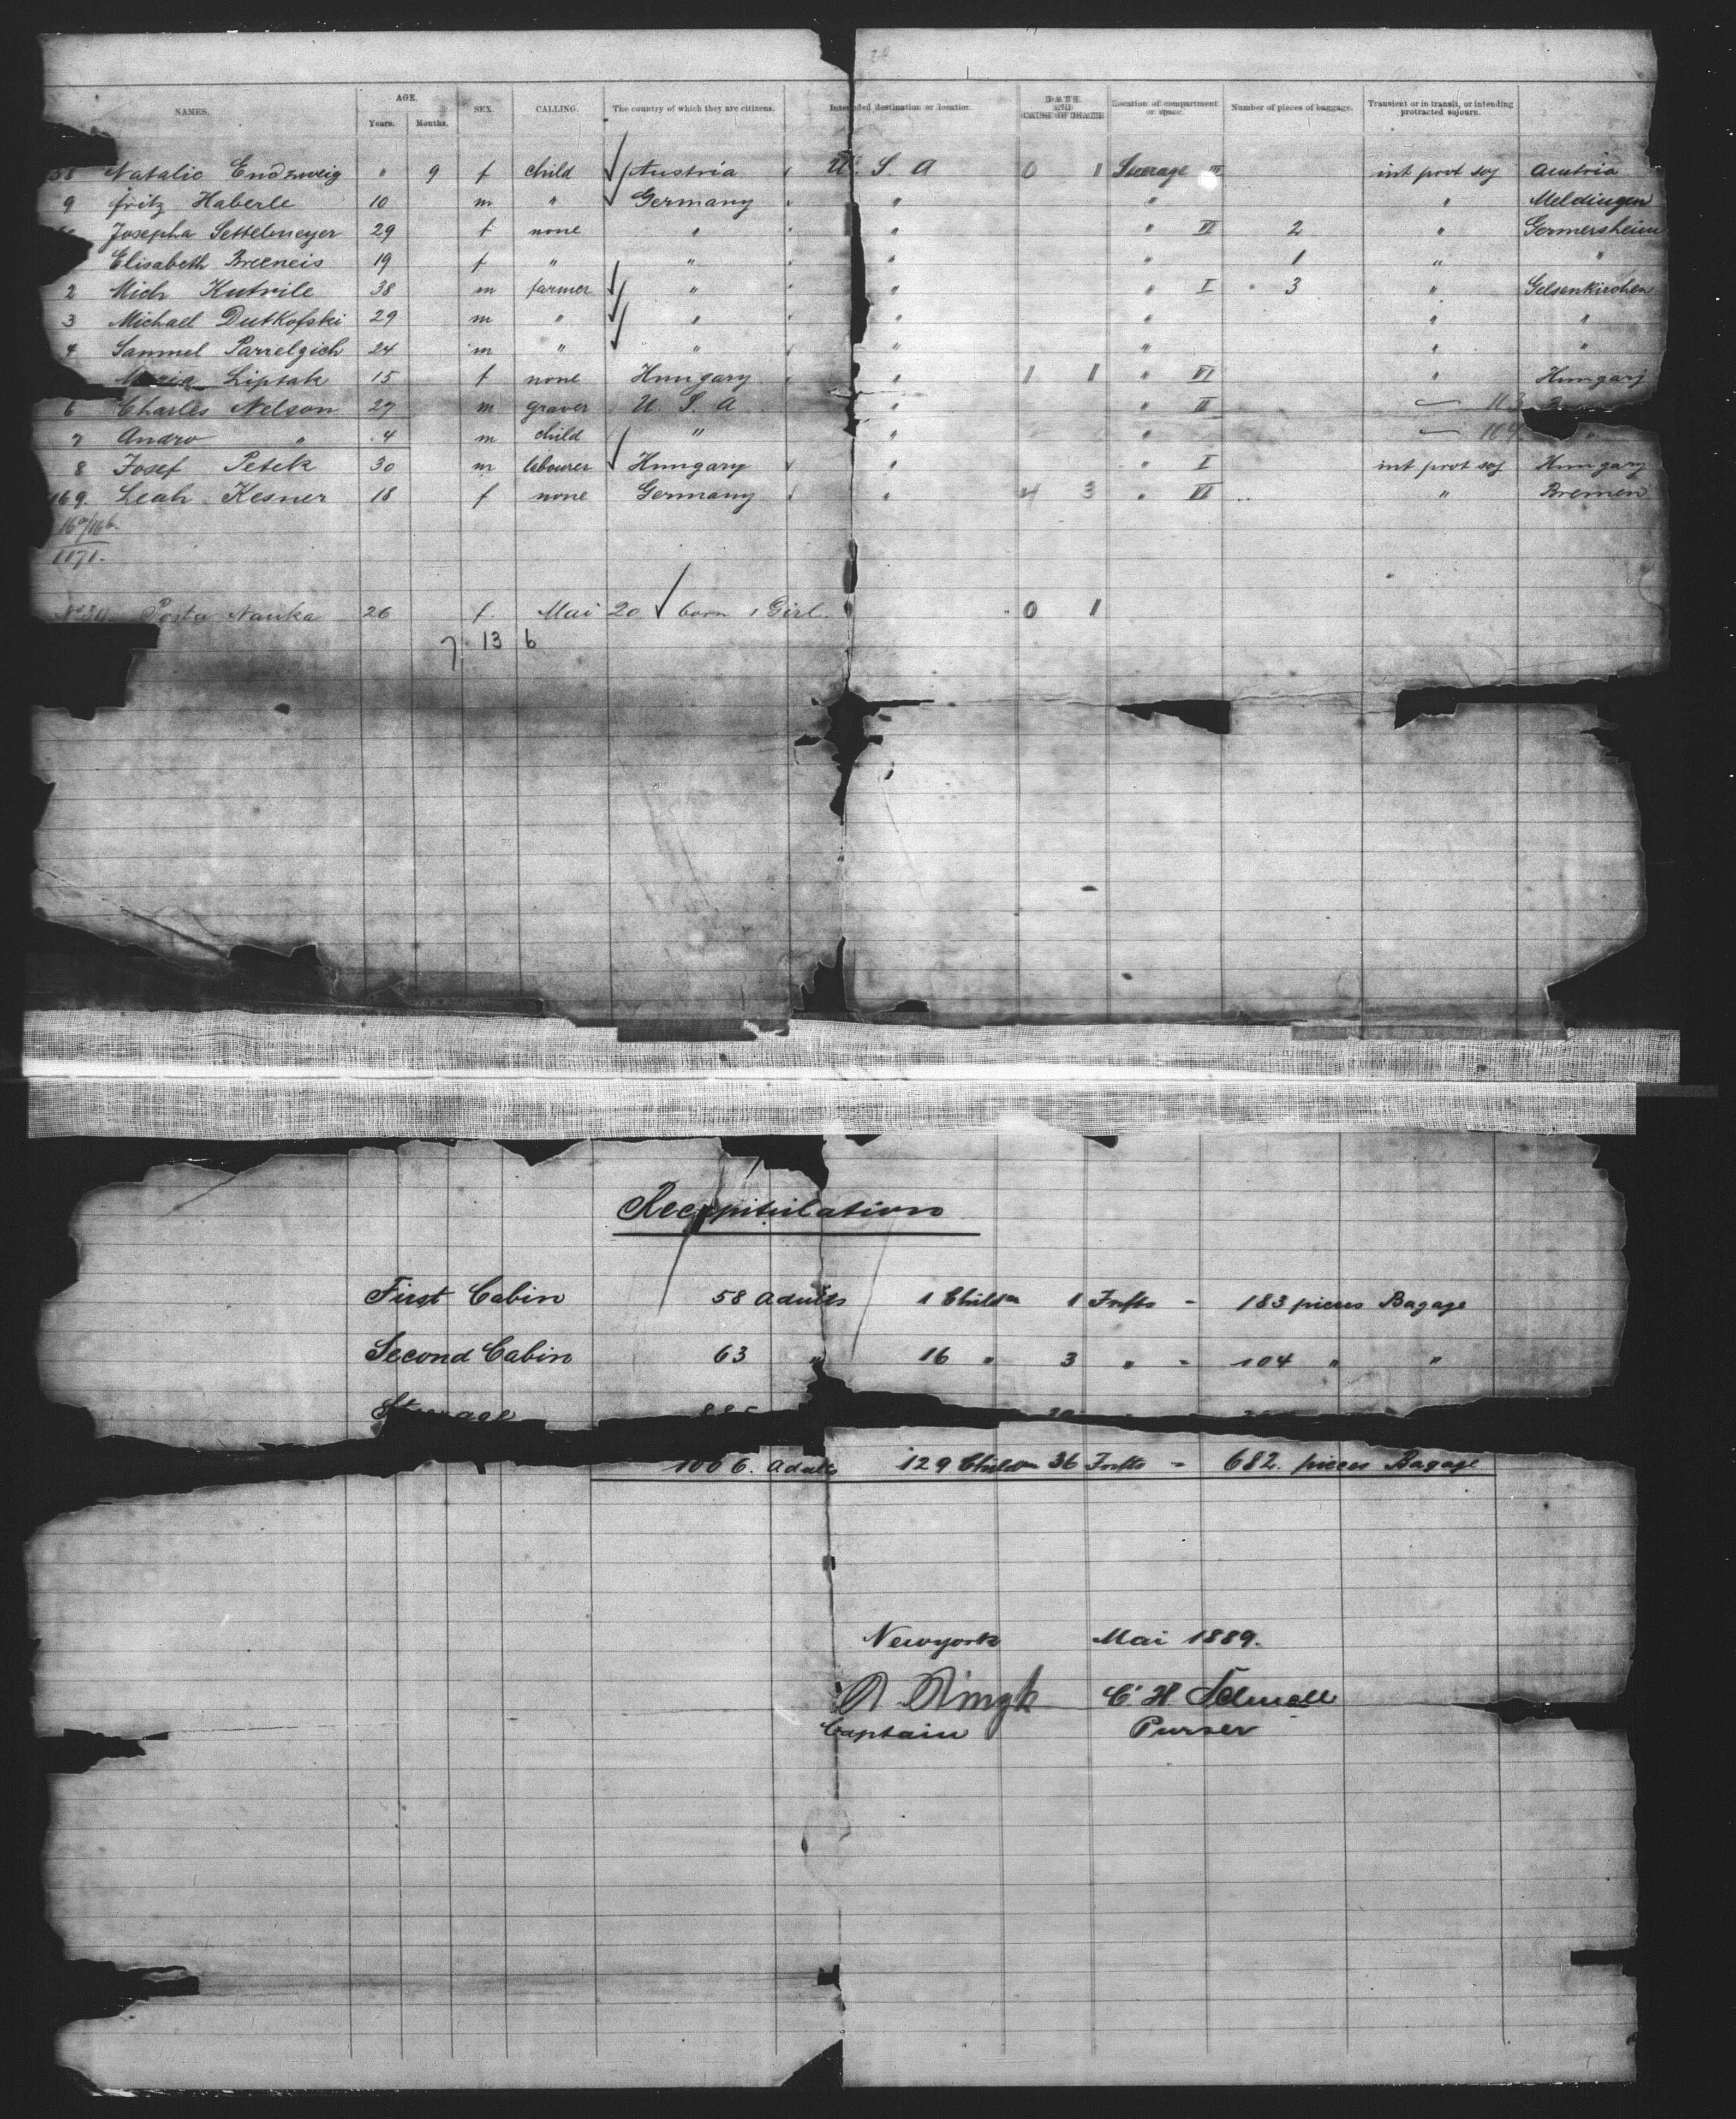 NAMES. AGE. Years. Months. SEX. CALLING. The country of which they are citizens. Intended destination or location. DATE AND CAUSE OF DEATH Location of compartment or space. Number of pieces of baggage. Transient or in transit, or intending protracted sojourn.
58 Natalie Endzweig " 9 f child Austria U. S. A 0 1 Steerage III int prot soj Austria
9 Fritz Haberle 10 m " Germany " " " Meldingen
Josepha Settelmeyer 29 f none " " " VI 2 " Germersheim
Elisabeth 19 f " " " " 1 " "
2 Mich Kutrile 38 m farmer " " " I 3 " Gelsenkirchen
3 Michael Dutkofski 29 m " " " " " "
4 Sammel Parrelgich 24 m " " " " " "
Maria Liptak 15 f none Hungary " 1 1 " VI " Hungary
6 Charles Nelson 27 m graver U. S. A " " II
7 Andro " 4 m child " " " "
8 Josef Petek 30 m labourer Hungary " " I int prot soj Hungary
169. Leah Kesner 18 f none Germany " 4 3 " VI " Bremen
1171.
Posta Nauka 26 f. Mai 20 born 1 Girl. 0 1
7, 13 6
Recapitulation
First Cabin 58 Adults 1 Childn 1 Infts - 183 pieces Bagage
Second Cabin 63 " 16 " 3 " - 104 " "
Steerage
1066. Adults 129 Childn 36 Infts - 682. pieces Bagage
Newyork Mai 1889.
R. Ringk C. H.
Captain Purser